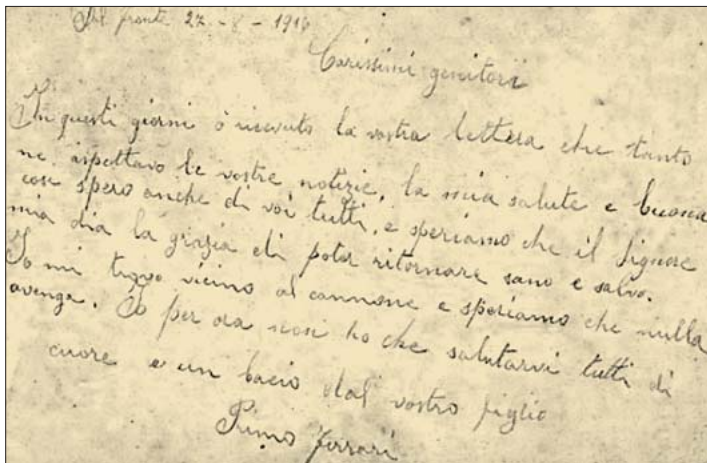 Dal fronte 27 - 8 - 1916
Carissimi genitori
In questi giorni ò ricevuto la vostra lettera che tanto
ne aspettavo le vostre notizie, la mia salute e buona
cosi spero anche di voi tutti, e speriamo che il Signore
mia dia la grazia di poter ritornare sano e salvo.
Io mi trovo vicino al cannone e speriamo che nulla
avenga. Io per ora non ho che salutarvi tutti di
cuore e un bacio dal vostro figlio
Primo Ferrari